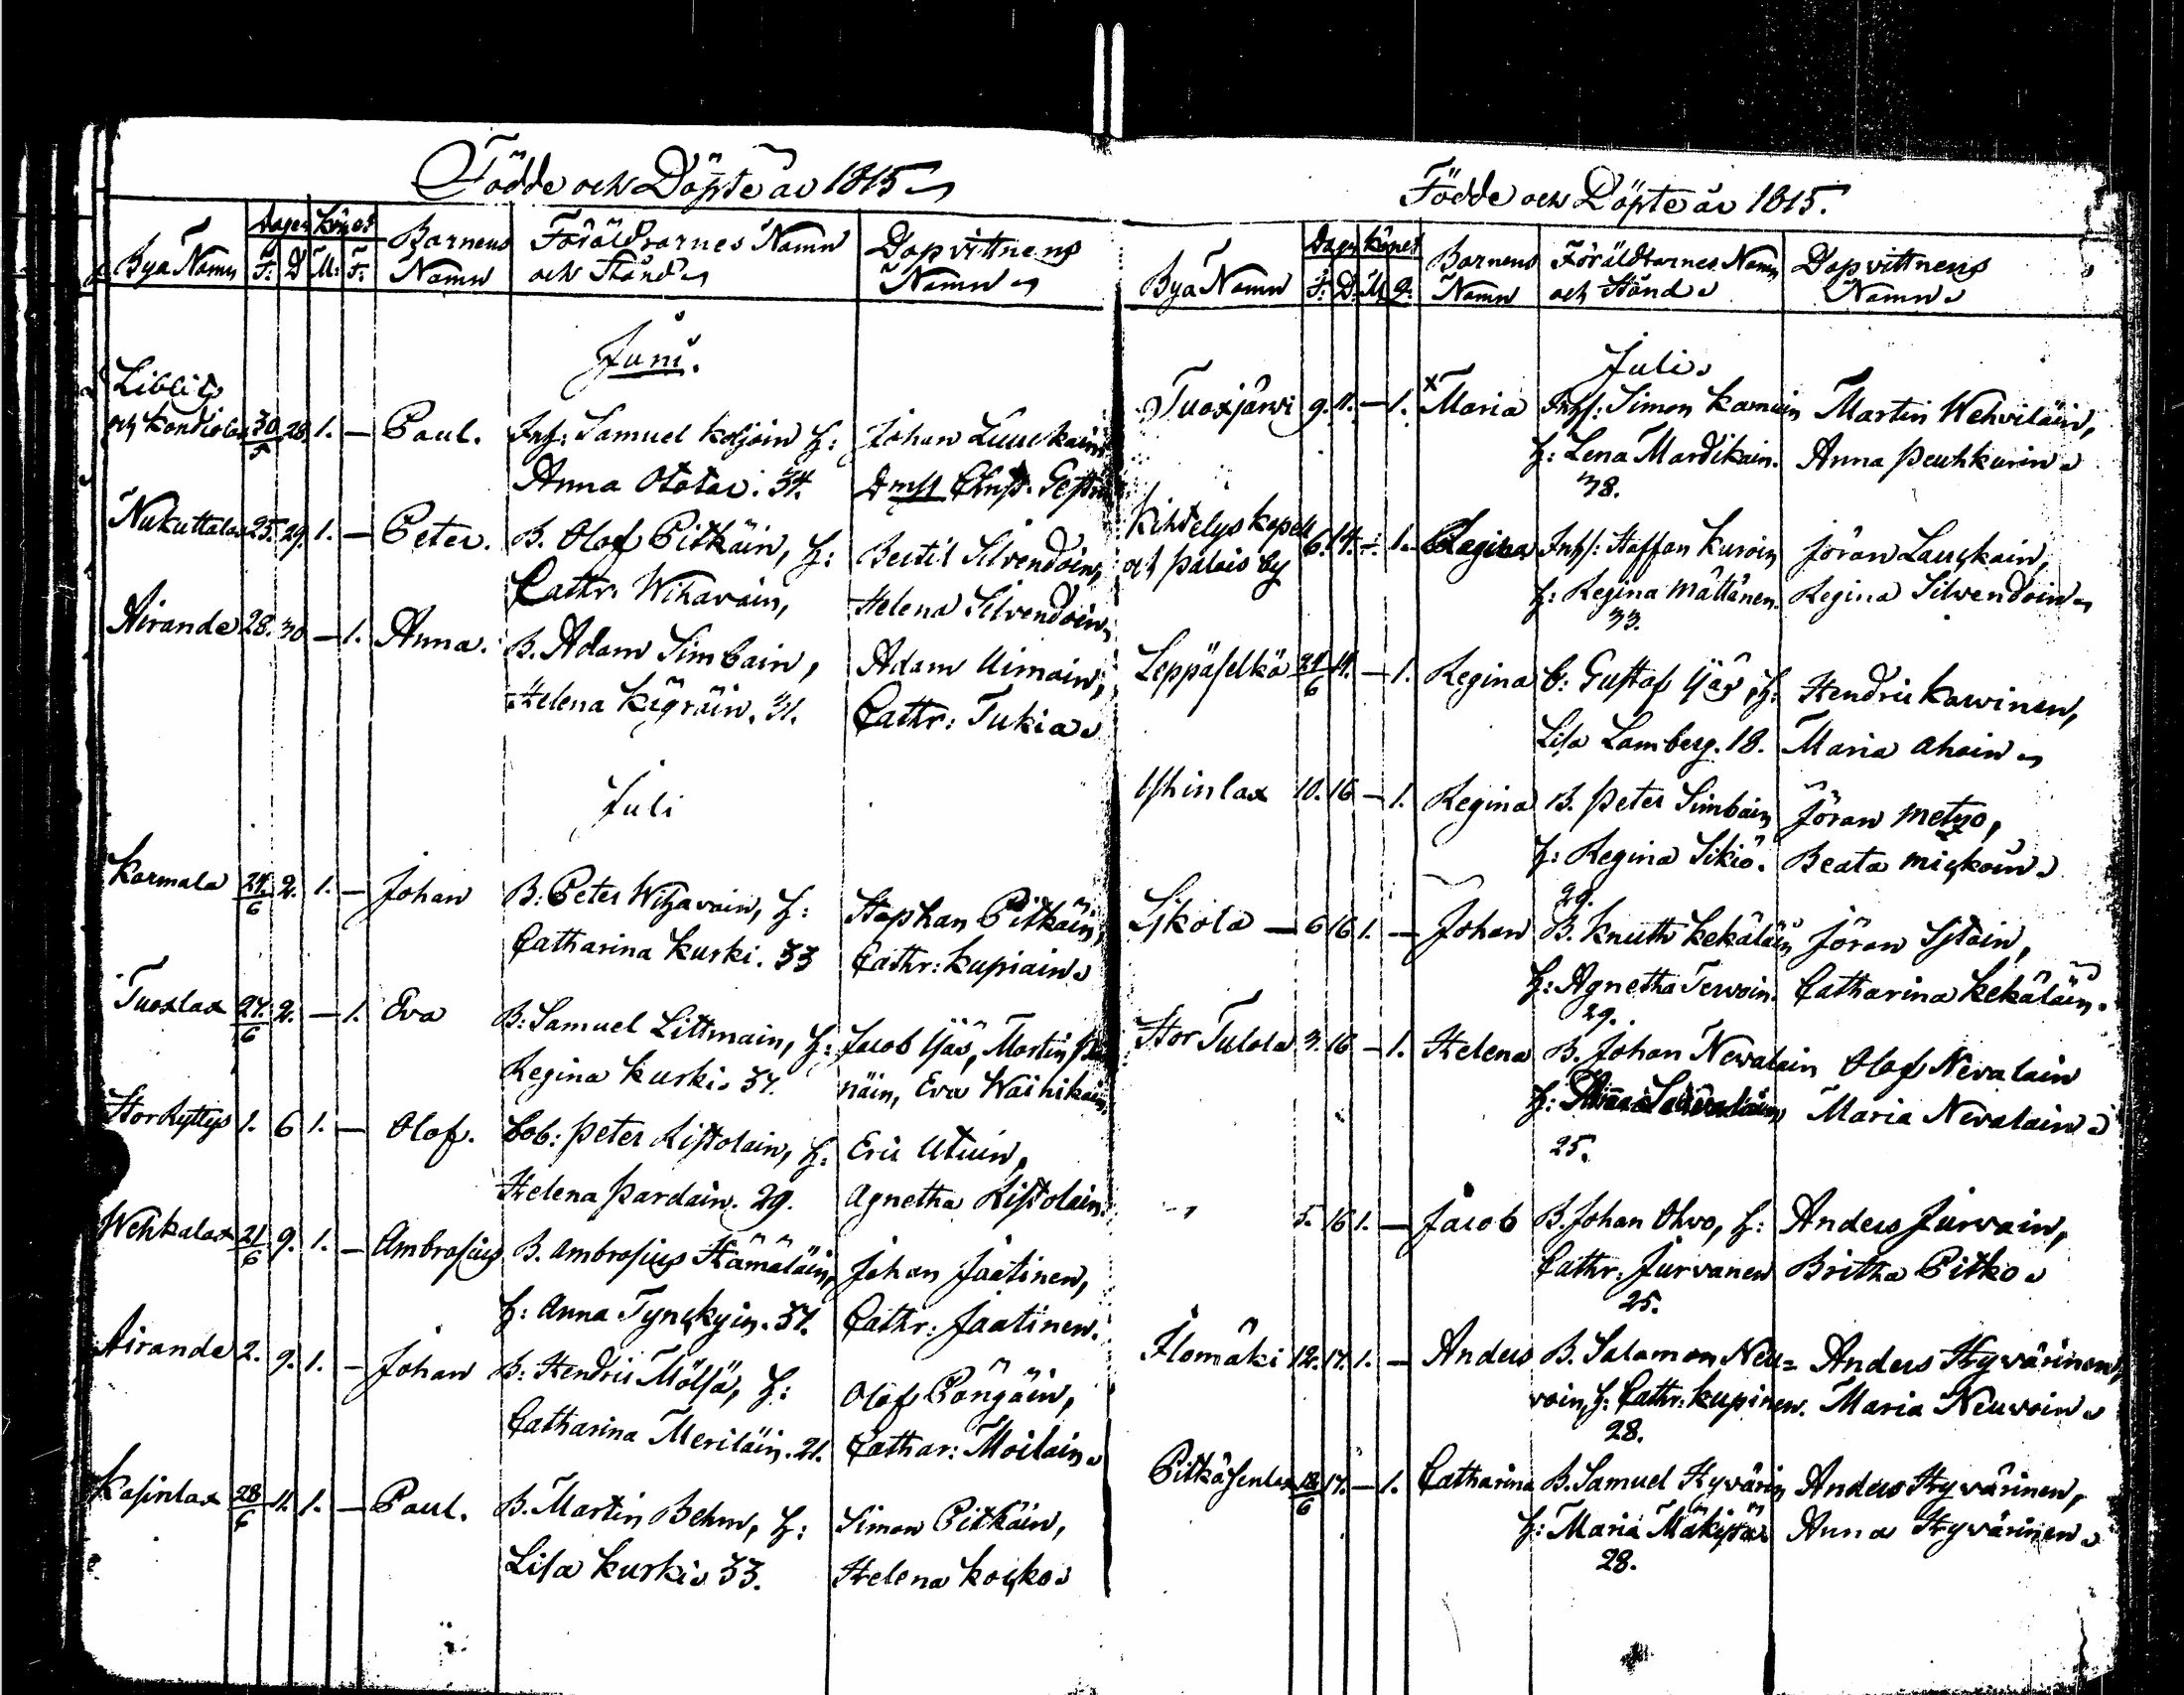 Födde och Döpte år 1815
Bya Namn
Dagen
F: D
Könet
M: F:
Barnens Namn
Föräldrarnes Namn och Stånd
Dopvittnens Namn
Juni.
Libelits
och Kondiola 30/5 28 1. — Paul. Inh: Samuel Koljoin H: Johan Luuckain
Anna Otatar. 34.
Nukuttalax 25. 29. 1. — Peter. B. Olof Pitkäin, H: Bertil Silvendoin,
Cathr. Wihavain, Helena Silvendoin
Hirande 28. 30 — 1. Anna. B. Adam Simbain, Adam Uimain,
Helena Kägräin. 31. Cathr: Tukia
Juli
Karmala 24/6 2. 1. — Johan B: Peter Wihavain, H: Staphan Pitkäin,
Catharina Kurki. 33 Cathr: Kupiain
Tuoxlax 27/6 2. — 1. Eva B: Samuel Littmain, H: Jacob Yjäs, Martin
Regina Kurki. 37. näin, Eva Waihikain
Stor Ryttys 1. 6 1. — Olof. Lob: Peter Ristolain, H: Eric Utuin,
Helena Pardain. 29. Agnetha Ristolain.
Wehkalax 21/6 9. 1. — Ambrosius B. Ambrosius Hämäläin, Johan Jaatinen,
H: Anna Tynskyin. 37. Cathr: Jaatinen.
Hirande 2. 9. 1. — Johan B: Hendric Mölsä, H: Olof Pöngäin,
Catharina Meriläin. 21. Cathar: Moilain
Kasinlax 28/6 11. 1. — Paul. B. Martin Behm, H: Simon Pitkäin,
Lisa Kurki 33. Helena Koisko
Födde och Döpte år 1815.
Bya Namn
Dagen
F. D.
Könet
M Q.
Barnens Namn
Föräldrarnes Namn och Stånd
Dopvittnens Namn
Juli
Tuoxjärvi 9. 11. — 1. Maria Inhs: Simon Kamuin Martin Wehviläin,
H: Lena Mardikain. Anna Peuhkurin
38.
Kihtelys kapell
och Palais by 6. 14. — 1. Regina Inhs: Staffan Kuroin Jöran Lauskain,
H: Regina Mättänen. Regina Silvendoin
33.
Leppäselkä 24/6 14. — 1. Regina B: Gustaf Yjäs, H: Hendric Karvinen,
Lisa Lamberg. 18. Maria Ahoin
Ihinlax 10. 16 — 1. Regina B. Peter Simbain Jöran Metzo,
H: Regina Sikiö. Beata Miskoin
29.
Sykola — 6 16 1. — Johan B. Knuth Kekäläin Jöran
H: Agnetha Tervoin. Catharina Kekäläin.
29.
Stor Tulola 3. 16 — 1. Helena B. Johan Nevalain Olof Nevalain
H: Maria Nevalain
25.
" 5. 16 1. — Jacob B. Johan Ohvo, H: Anders Jurvain,
Cathr: Jurvanen Britha Pitko
25.
Ilomäki 12. 17. 1. — Anders B. Salamon Neu= Anders Hyvärinen,
voin, H: Cathr: Kupinen. Maria Neuvoin
28.
Pitkäsenlax 18/6 17. — 1. Catharina B. Samuel Hyvärin Anders Hyvärinen,
H: Maria Mäkipää Anna Hyvärinen
28.